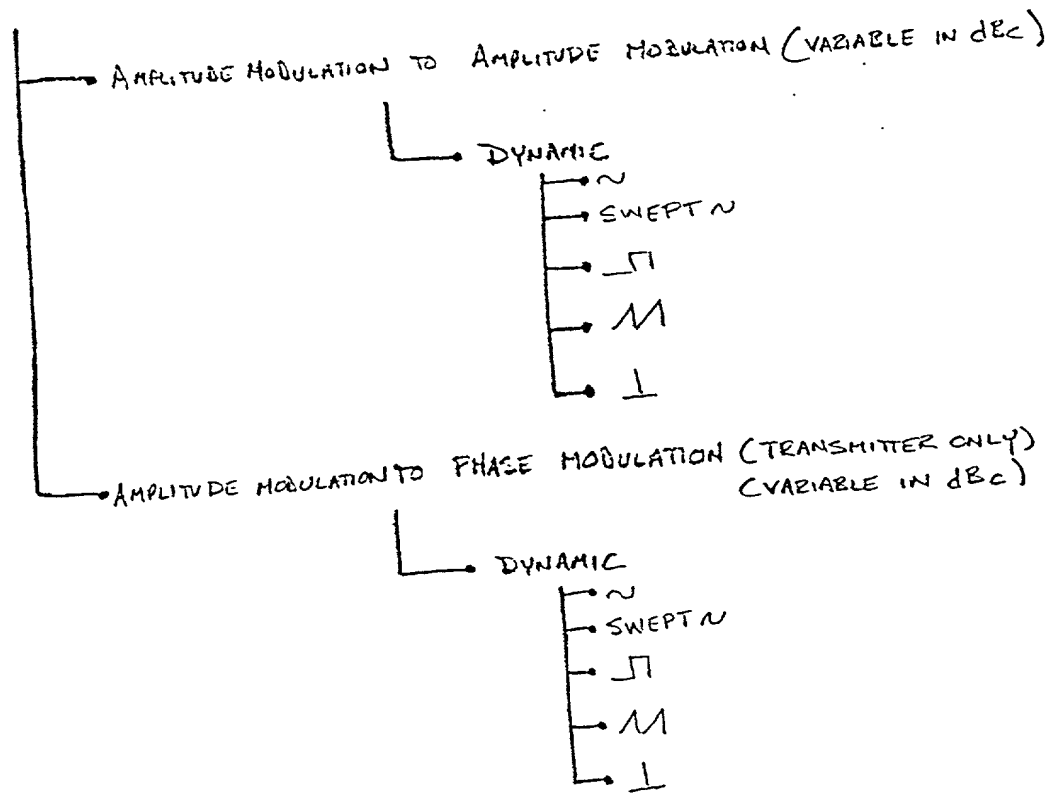 AMPLITUDE MODULATION TO AMPLITUDE MODULATION (VARIABLE IN dBc)
DYNAMIC
~
SWEPT ~
AMPLITUDE MODULATION TO PHASE MODULATION (TRANSMITTER ONLY)
(VARIABLE IN dBc)
DYNAMIC
~
SWEPT ~